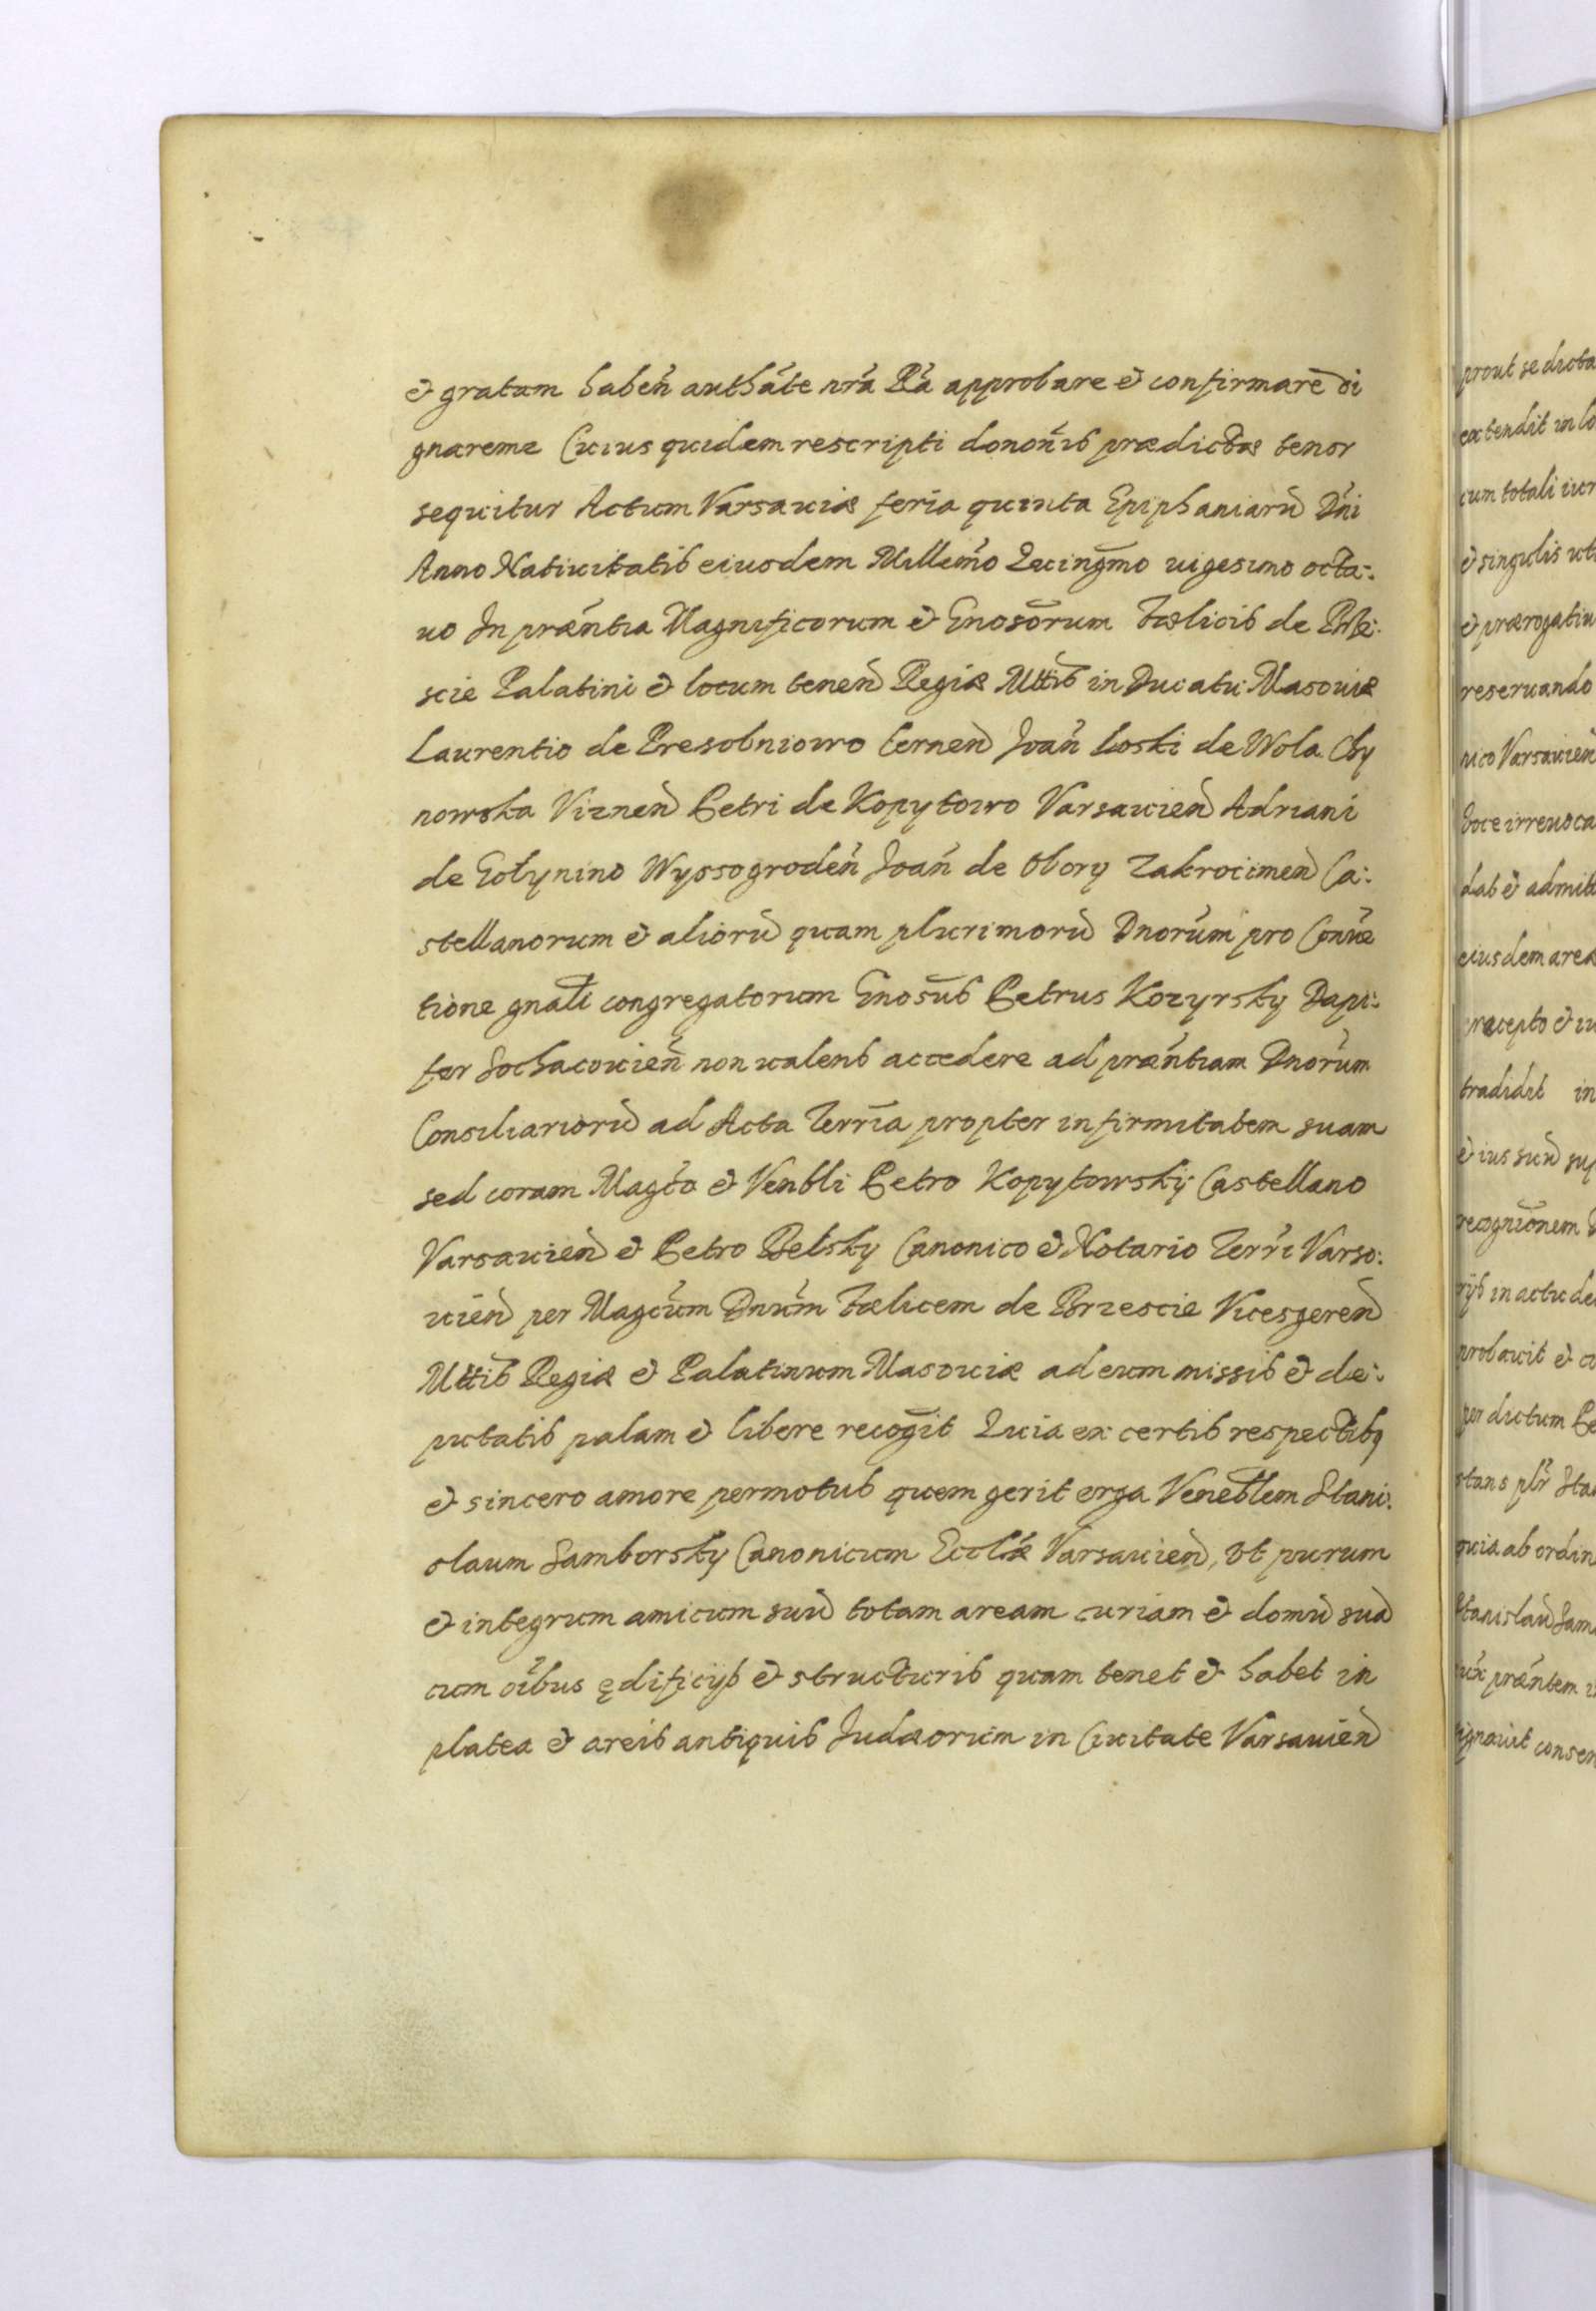 & gratam haben̄ authāte nrā Rā approbare & confirmare di
gnaremr Cuius quidem rescripti donon̄is prædictæ tenor
sequitur Actum Varsauiæ feria quinta Epiphaniarū Dn̄i
Anno Natiuitatis eiusdem Millem̄o Quingm̄o uigesimo octa:
uo In præn̄tia Magnificorum & Gnosōrum Fælicis de Brze:
scie Palatini & locum tenen̄ Regiæ Mttis in Ducatu Masouiæ
Laurentio de Presobniowo Cernen̄ Joan̄ Loski de Wola Chy
nowska Viznen̄ Petri de Kopytowo Varsauien̄ Adriani
de Gołynino Wyssogroden̄ Joan̄ de Obory Zakrocimen̄ Ca:
stellanorum & aliorū quam plurimorū Dnōrum pro Conuē
tione gnāli congregatorum Gnosūs Petrus Kozyrsky Dapi:
fer Sochacouien̄ non ualens accedere ad præn̄tiam Dnōrum
Consiliariorū ad Acta Terrīa propter infirmitatem suam
sed coram Magc̄o & Venbli Petro Kopytowsky Castellano
Varsauien̄ & Petro Belsky Canonico & Notario Terrī Varso:
uien̄ per Magcūm Dnūm Fælicem de Brzescie Vicesgeren̄
Mttis Regiæ & Palatinum Masouiæ ad eum missis & de:
putatis palam & libere recoḡit Quia ex certis respectibq
& sincero amore permotus quem gerit erga Veneblem Stani:
slaum Samborsky Canonicum Ecclæ Varsauien̄, Vt purum
& integrum amicum suū totam aream curiam & domū suā
cum oībus ędificijs & structuris quam tenet & habet in
platea & areis antiquis Judæorum in Ciuitate Varsauien̄
prout se dicta
extendit in lo
cum totali iur
& singulis
& prærogatiu
reseruando
nico Varsauien̄
irreuoca
dat & admit
eiusdem area
tradidit in
& ius suū sup
recogniōnem
in actu de
probauit & co
per dictum Pe
stans
quia ab ordin
Stanislaū Sam
præn̄tem
signauit consen